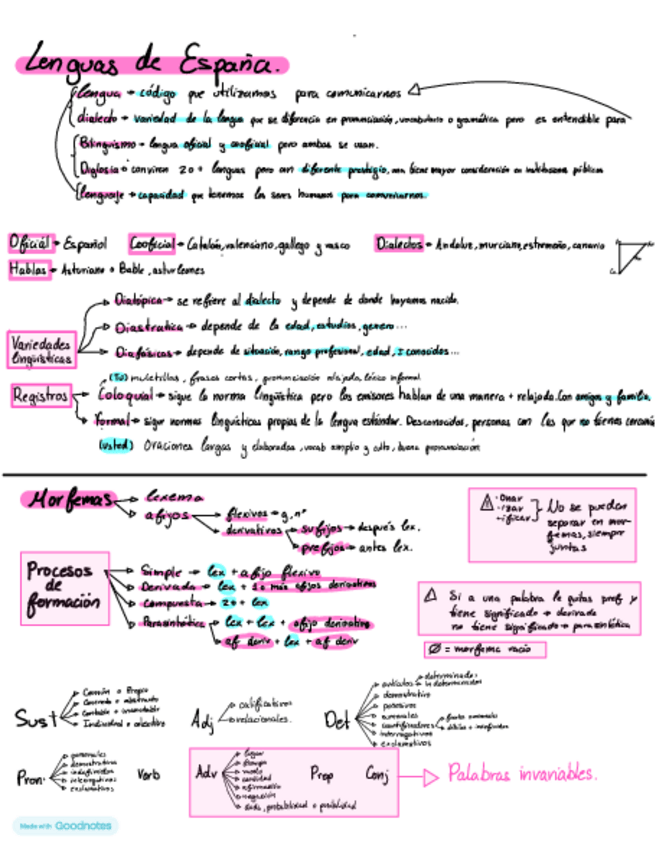 Lenguas de España.
Lengua → código que utilizamos para comunicarnos
dialecto → variedad de la lengua que se diferencia en pronunciación, vocabulario o gramática pero es entendible para
Bilinguismo → lengua oficial y cooficial pero ambas se usan.
Diglosia → conviven 2 o + lenguas pero con diferente prestigio, una tiene mayor consideración en instituciones públicas
Lenguaje → capacidad que tenemos los seres humanos para comunicarnos.
Oficial → Español Cooficial → Catalán, valenciano, gallego y vasco Dialectos → Andaluz, murciano, extremeño, canario
Hablas → Asturiano o Bable, asturleones
Variedades lingüísticas
Diatópica → se refiere al dialecto y depende de donde hayamos nacido.
Diastratica → depende de la edad, estudios, genero...
Diafásicas → depende de situación, rango profesional, edad, conocidos...
(Tú) muletillas, frases cortas, pronunciación relajada, léxico informal
Registros
Coloquial → sigue la norma lingüística pero los emisores hablan de una manera + relajada. Con amigos y familia.
formal → sigue normas lingüísticas propias de la lengua estándar. Desconocidos, personas con las que no tienes
(usted) Oraciones largas y elaboradas, vocab amplio y culto, buena pronunciación
Morfemas
lexema
afijos
flexivos → g, nº
derivativos
sufijos → después lex.
prefijos → antes lex.
-onar
-izar
-ificar
No se pueden
separar en mor-
femas, siempre
juntas
Procesos de formación
Simple → lex + afijo flexivo
Derivada → lex + 1 o más afijos derivativos
compuesta → 2 o + lex
Parasintética → lex + lex + afijo derivativo
af deriv + lex + af deriv
Si a una palabra le quitas pref y
tiene significado → derivada
no tiene significado → parasintética
Ø = morfema vacio
Sust
Común o Propio
Concreto o abstracto
Contable o incontable
Individual o colectivo
Adj
calificativos
relacionales.
Det
artículos
determinados
indeterminados
demostrativo
posesivos
numerales
cuantificadores
interrogativos
exclamativos
Pron.
personales
demostrativos
indefinidos
interrogativos
exclamativos
Verb
Adv
lugar
tiempo
modo
cantidad
afirmación
negación
duda, probabilidad o posibilidad
Prep
Conj
Palabras invariables.
Made with Goodnotes